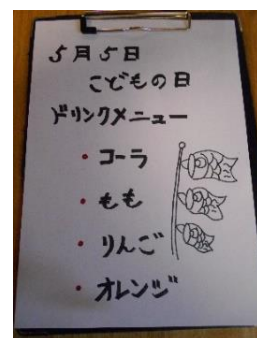 5月5日
こどもの日
ドリンクメニュー
・コーラ
・もも
・りんご
・オレンジ